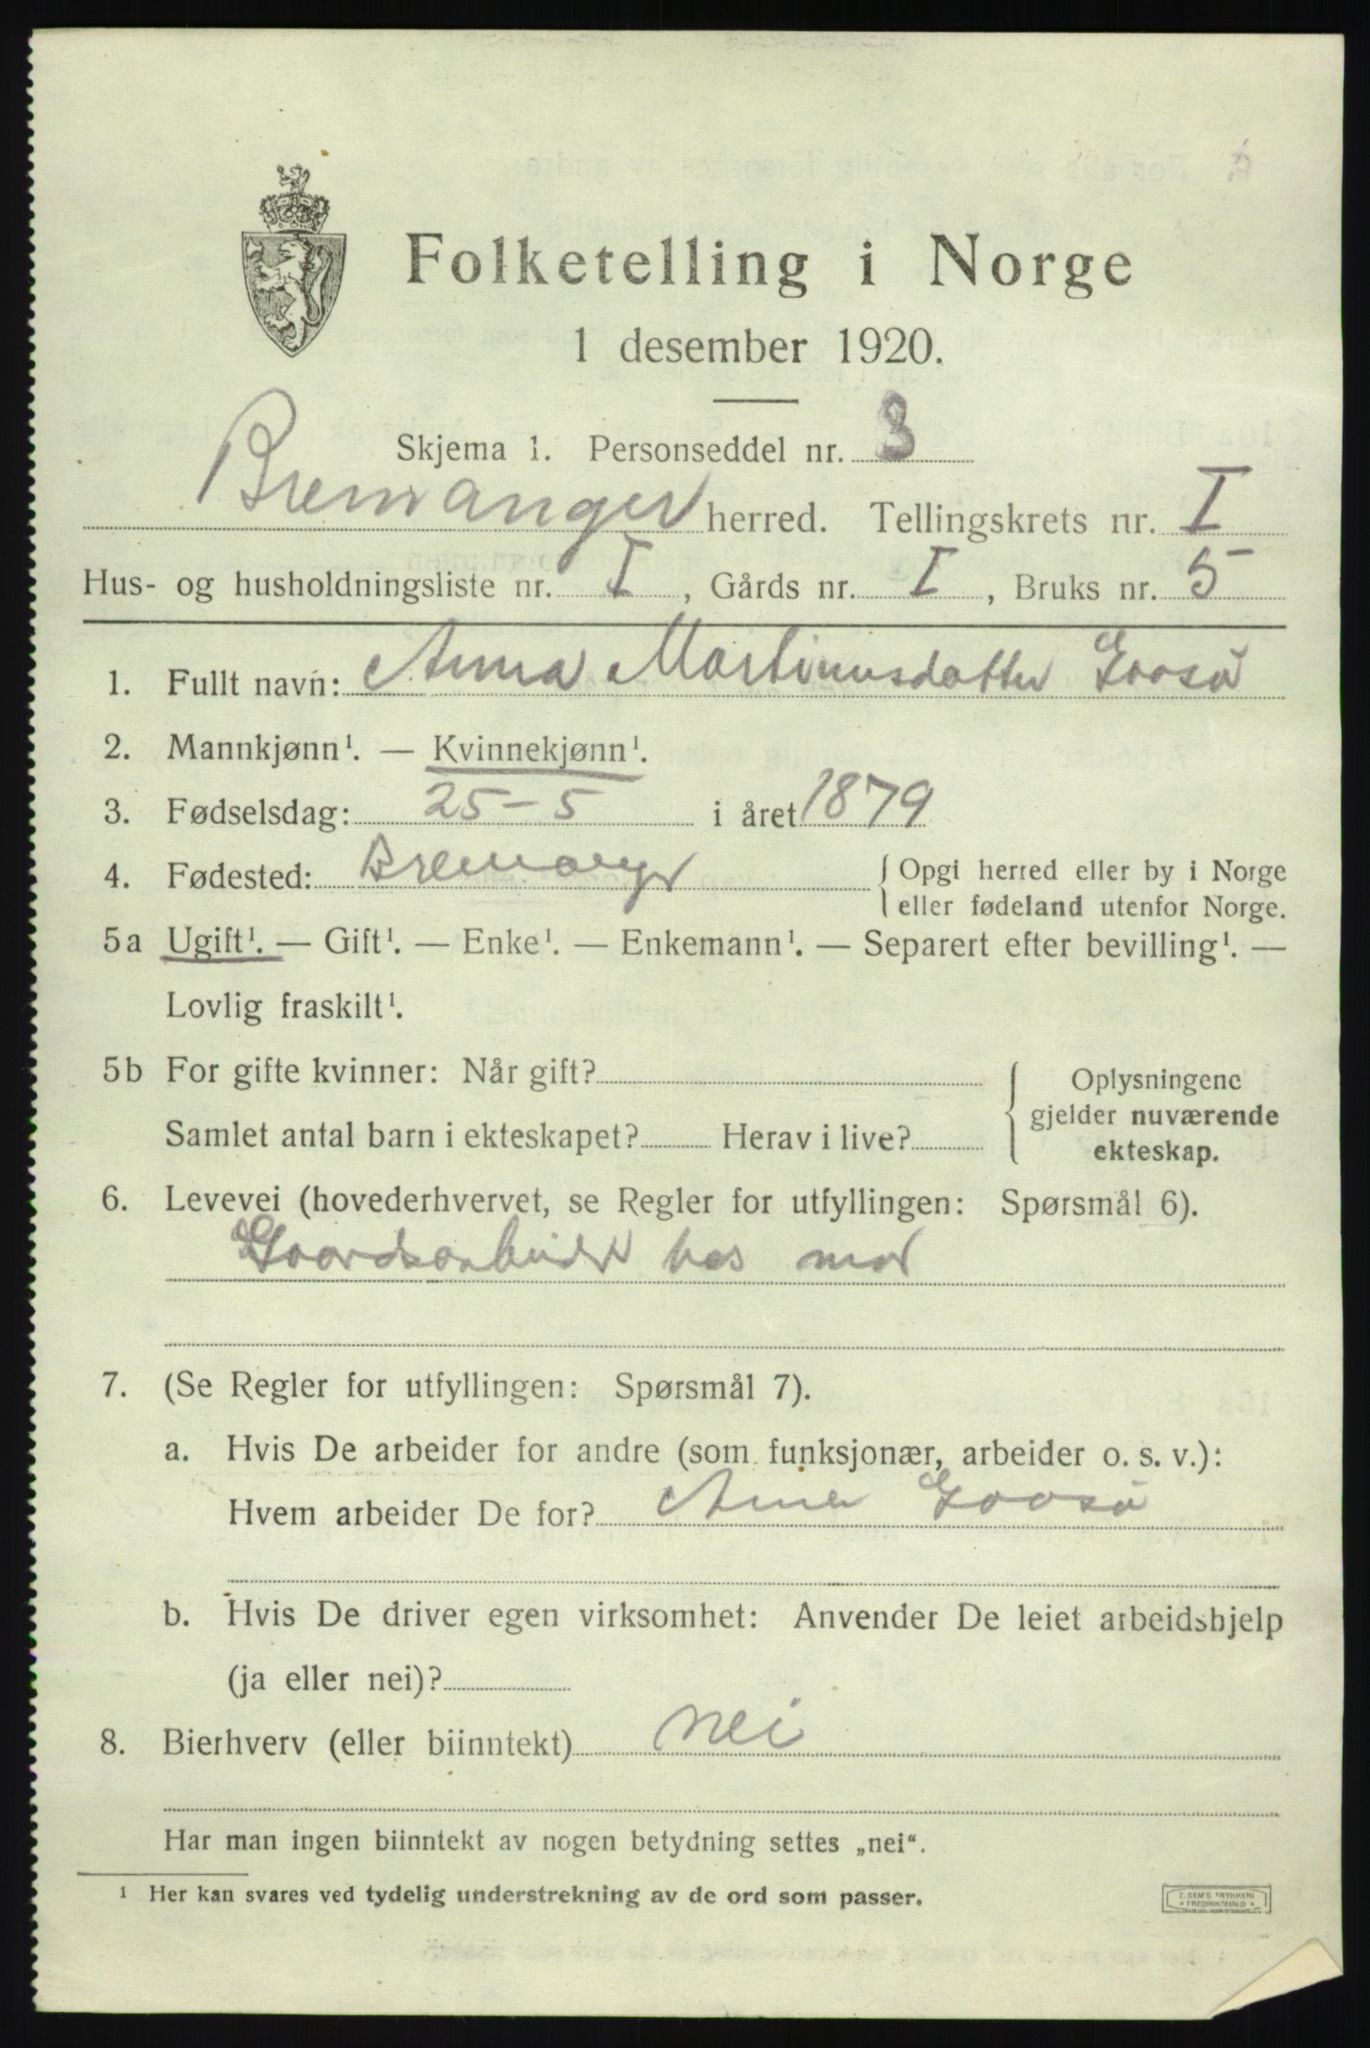 Folketelling i Norge
1 desember 1920.
Skjema 1. Personseddel nr. 3
Bremanger herred. Tellingskrets nr. I
Hus- og husholdningsliste nr. I, Gårds nr. I, Bruks nr. 5
1. Fullt navn: Anna Martinusdatter Goosø
2. Mannkjønn¹. — Kvinnekjønn¹.
3. Fødselsdag: 25-5 i året 1879
4. Fødested: Bremanger { Opgi herred eller by i Norge
eller fødeland utenfor Norge.
5a Ugift¹. — Gift¹. — Enke¹. — Enkemann¹. — Separert efter bevilling¹. —
Lovlig fraskilt¹.
5b For gifte kvinner: Når gift?
Samlet antal barn i ekteskapet? Herav i live?
{ Oplysningene
gjelder nuværende
ekteskap.
6. Levevei (hovederhvervet, se Regler for utfyllingen: Spørsmål 6).
Goardsarbeider hos mor
7. (Se Regler for utfyllingen: Spørsmål 7).
a. Hvis De arbeider for andre (som funksjonær, arbeider o. s. v.):
Hvem arbeider De for? Goosø
b. Hvis De driver egen virksomhet: Anvender De leiet arbeidshjelp
(ja eller nei)?
8. Bierhverv (eller biinntekt) nei
Har man ingen biinntekt av nogen betydning settes „nei“.
¹ Her kan svares ved tydelig understrekning av de ord som passer.
E. SEM'S TRYKKERI
FREDRIKSHALD